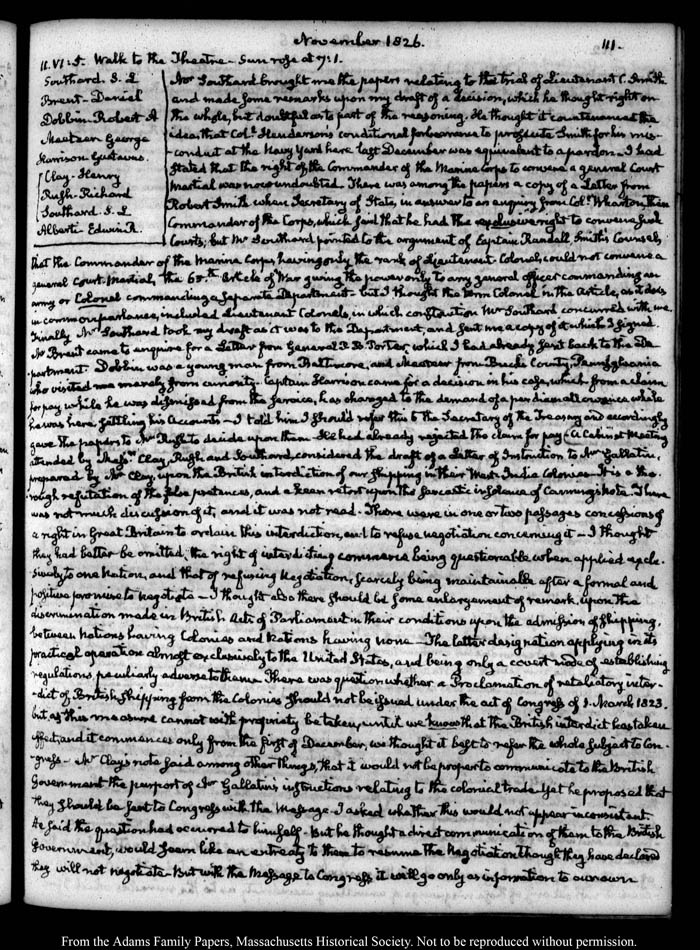 November 1826.
111.
11. VI:5. Walk to the Theatre. Sun rose at 7:1.
Southard. S. L
Brent- Daniel
Dobbin- Robert A
Meetzer George
Harrison Gustavus.
Clay- Henry
Rush- Richard
Southard. S. L
Alberti- Edwin R.
Mr Southard brought me the papers relating to the trial of Lieutenant C. Smith
and made some remarks upon my draft of a decision, which he thought right on
the whole, but doubtful as to part of the reasoning. He thought it countenanced the
idea that Coll. Henderson's conditional forbearance to prosecute Smith for his mis-
-conduct at the Navy Yard here last December was equivalent to a pardon. I had
stated that the right of the Commander of the Marine Corps to convene a general Court
Martial was now undoubted. There was among the papers a copy of a Letter from
Robert Smith when Secretary of State, in answer to an enquiry from Coll. Wharton, then
Commander of the Corps, which said that he had the exclusive right to convene such
Courts; but Mr Southard pointed to the argument of Captain Randall, Smith's Counsel,
that the Commander of the Marine Corps, having only the rank of Lieutenant-Colonel, could not convene a
general Court-Martial, the 65th. Article of War giving the power only to any general officer commanding an
army or Colonel commanding a separate Department- but I thought the term Colonel in the Article, as it does
in common parlance, included Lieutenant Colonels, in which construction Mr Southard concurred with me.
Finally Mr Southard took my draft as it was to the Department, and sent me a copy of it which I signed.
Mr Brent came to enquire for a Letter from General P. B. Porter, which I had already sent back to the De-
partment. Dobbin was a young man from Baltimore, and Meetzer from Bucks County, Pennsylvania
who visited me merely from curiosity. Captain Harrison came for a decision in his case, which from a claim
for pay while he was dismissed from the service, has changed to the demand of a per diem allowance while
he was here settling his Accounts- I told him I should refer this to the Secretary of the Treasury and accordingly
gave the papers to Mr Rush to decide upon them. He had already rejected the claim for pay- A Cabinet Meeting
attended by Messrs. Clay, Rush and Southard, considered the draft of a Letter of Instruction to Mr Gallatin,
prepared by Mr Clay, upon the British interdiction of our shipping in their West-India Colonies. It is a tho-
-rough refutation of the false pretences, and a keen retort upon the sarcastic insolence of Canning's Note. There
was not much discussion of it, and it was not read. There were in one or two passages concessions of
a right in Great Britain to ordain this interdiction, and to refuse negotiation concerning it- I thought
they had better be omitted, the right of interdicting commerce being questionable when applied exclu-
sively to one Nation, and that of refusing Negotiation, scarcely being maintainable after a formal and
positive promise to negotiate- I thought also there should be some enlargement of remark, upon the
discrimination made in British Acts of Parliament in their conditions upon the admission of shipping,
between Nations having Colonies and Nations having none- The latter designation applying in its
practical operation almost exclusively to the United States, and being only a covert mode of establishing
regulations peculiarly adverse to them. There was question whether a Proclamation of retaliatory inter-
-dict of British shipping from the Colonies should not be issued under the act of Congress of 1. March 1823.
but as this measure cannot with propriety be taken, until we know that the British interdict has taken
effect, and it commences only from the first of December, we thought it best to refer the whole subject to Con-
-gress- Mr Clay's note said among other things, that it would not be proper to communicate to the British
Government the purport of Mr Gallatin's instructions relating to the colonial trade- Yet he proposed that
they should be sent to Congress with the Message- I asked whether this would not appear inconsistent.
He said the question had occurred to himself- But he thought a direct communication of them to the British
Government, would seem like an entreaty to them to resume the Negotiation though they have declared
they will not negotiate- But with the Message to Congress it will go only as information to our own
From the Adams Family Papers, Massachusetts Historical Society. Not to be reproduced without permission.